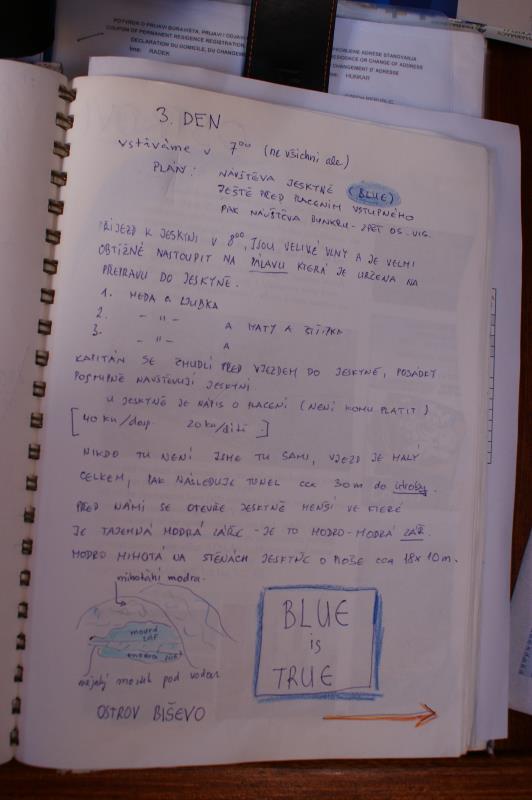 POTVRDA O PRIJAVI BORAVIŠTA, PRIJAVI I ODJAVI
COUPON OF PERMANENT RESIDENCE REGISTRATION,
DECLARATION DU DOMICILE, DU CHANGEMENT
Ime: RADEK
PROMJENE ADRESE STANOVANJA
RESIDENCE OR CHANGE OF ADDRESS
CHANGEMENT D'ADRESSE
3. DEN
vstáváme v 7⁰⁰ (ne všichni ale)
PLÁN: NÁVŠTĚVA JESKYNĚ (BLUE)
JEŠTĚ PŘED PLACENÍM VSTUPNÉHO
PAK NÁVŠTĚVA BUNKRU - ZPĚT OS. VIS.
PŘÍJEZD K JESKYNI V 8⁰⁰, JSOU VELIKÉ VLNY A JE VELMI
OBTÍŽNÉ NASTOUPIT NA PÁLAVU KTERÁ JE URČENA NA
PŘEPRAVU DO JESKYNĚ.
1. HEĎA A LJUBKA
2. - 11 -
3. - 11 - A MATY A
A
KAPITÁN SE ZHUDLÍ PŘED VJEZDEM DO JESKYNĚ, POSÁDKY
POSTUPNĚ NAVŠTĚVUJÍ JESKYNI.
U JESKYNĚ JE NÁPIS O PLACENÍ (NENÍ KOMU PLATIT)
[40 KN/dosp. 20 KN/dítě.]
NIKDO TU NENÍ JSME TU SAMI, VJEZD JE MALÝ
CELKEM, PAK NÁSLEDUJE TUNEL cca 30m do útroby.
PŘED NÁMI SE OTEVŘE JESKYNĚ MENŠÍ VE KTERÉ
JE TAJEMNÁ MODRÁ ZÁŘE - JE TO MODRO-MODRÁ ZÁŘ.
MODRO MIHOTÁ NA STĚNÁCH JESKYNĚ O PLOŠE CCA 18x10m.
mihotání modra.
modrá zář
modrá zář
nějaký mostek pod vodou
OSTROV BIŠEVO
BLUE
is
TRUE